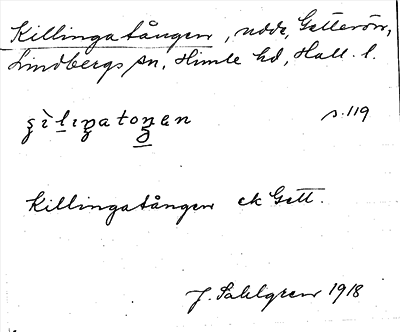 Killingatången, udde, Getterön,
Lindbergs sn, Himle hd, Hall. l.
s. 119
Killingatången ek Gett.
J. Sahlgren 1918